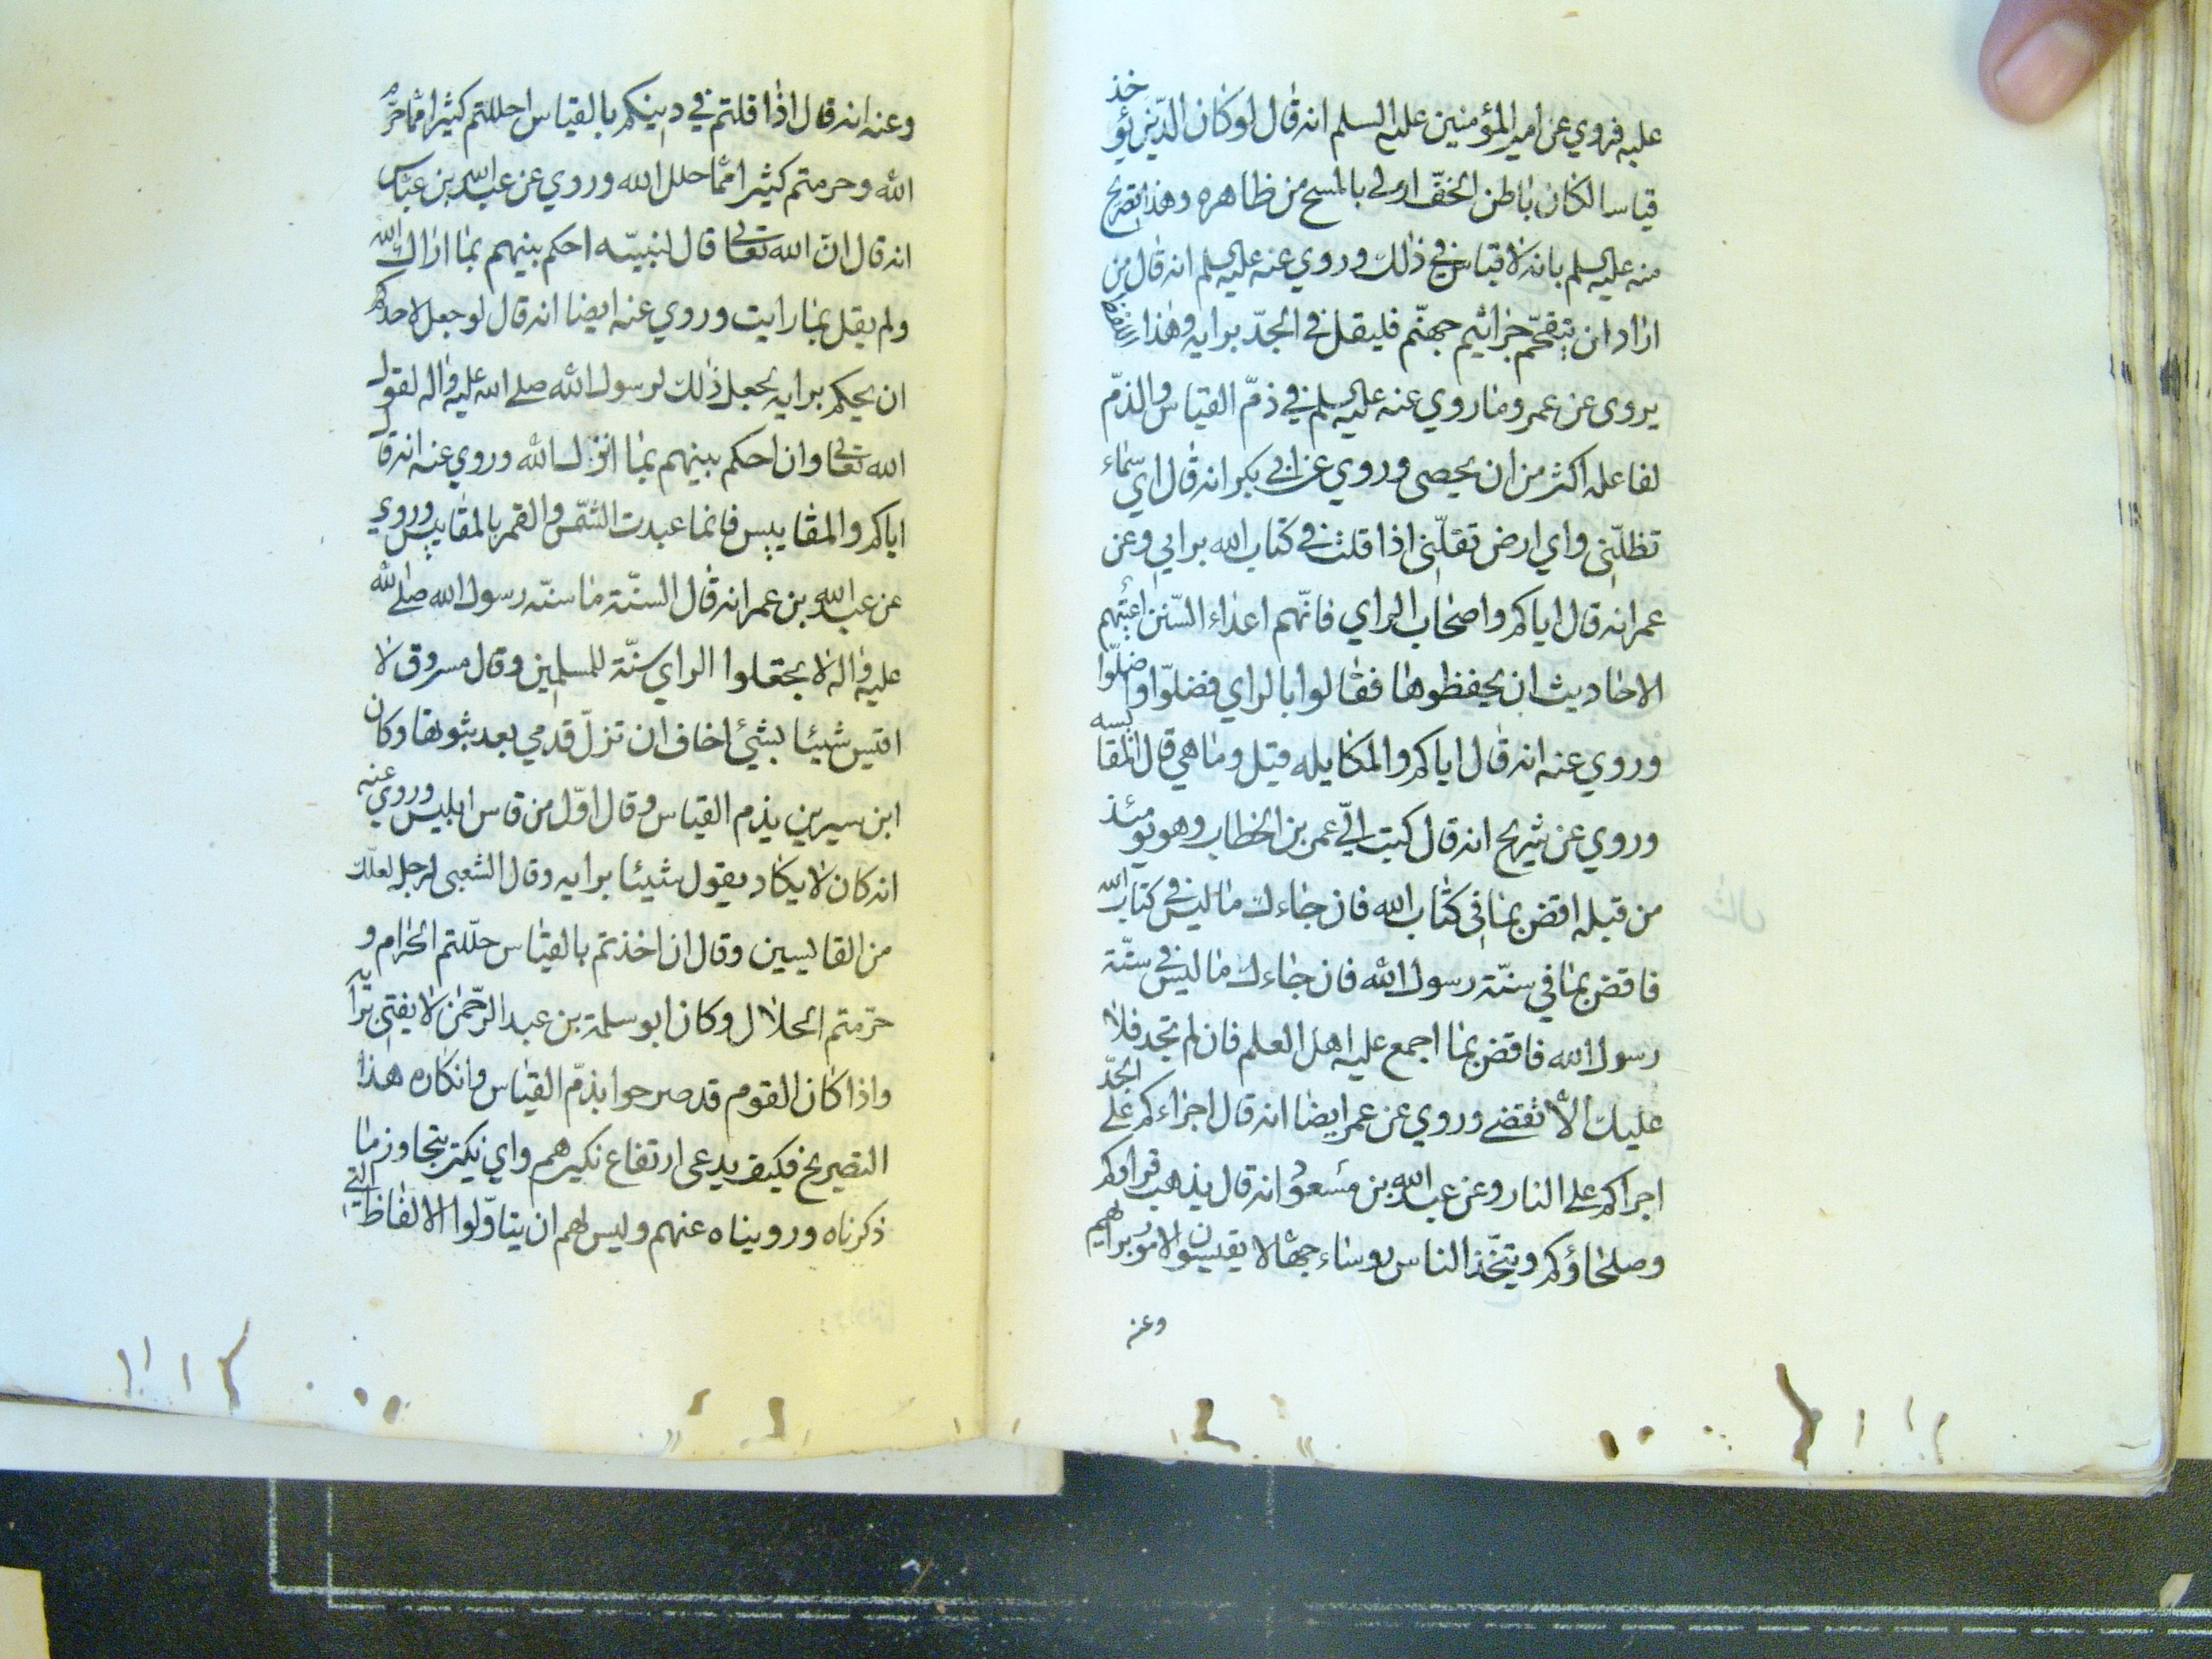 عليه فروي عن امير المؤمنين عليه السلم انه قال لو كان الدين يؤخذ
قياسا لكان باطن الخف اولى بالمسح من ظاهره وهذا تصريح
منه عليه السلم بانه لا قياس في ذلك وروي عنه عليه السلم انه قال من
اراد ان يتقحم جراثيم جهنم فليقل في الجد برايه وهذا اللفظ
يروى عن عمر وما روي عنه عليه السلم في ذم القياس والذم
لفاعله اكثر من ان يحصى وروي عن ابي بكر انه قال اي سماء
تظلني واي ارض تقلني اذا قلت في كتاب الله برايي وعن
عمر انه قال اياكم واصحاب الراي فانهم اعداء السنن اعيتهم
الاحاديث ان يحفظوها فقالوا بالراي فضلوا واضلوا
وروي عنه انه قال اياكم والمكايله قيل وما هي قال المقايسه
وروي عن شريح انه قال كتب الي عمر بن الخطاب وهو يومئذ
من قبله اقض بما في كتاب الله فان جاءك ما ليس في كتاب الله
فاقض بما في سنة رسول الله فان جاءك ما ليس في سنة
رسول الله فاقض بما اجمع عليه اهل العلم فان لم تجد فلا
عليك الا تقضي وروي عن عمر ايضا انه قال اجراءكم على الجد
اجراكم على النار وعن عبد الله بن مسعود انه قال يذهب قراوكم
وصلحاؤكم ويتخذ الناس روساء جهالا يقيسون الامور برايهم
وعنه
وعنه انه قال اذا قلتم في دينكم بالقياس احللتم كثيرا مما حرم
الله وحرمتم كثيرا مما حلل الله وروي عن عبد الله بن عباس
انه قال ان الله تعالى قال لنبيه احكم بينهم بما اراك الله
ولم يقل بما رايت وروي عنه ايضا انه قال لو جعل لاحدكم
ان يحكم برايه لجعل ذلك لرسول الله صلى الله عليه واله لقول
الله تعالى وان احكم بينهم بما انزل الله وروي عنه انه قال
اياكم والمقاييس فانما عبدت الشمس والقمر بالمقاييس وروي
عن عبد الله بن عمر انه قال السنة ما سنه رسول الله صلى الله
عليه واله لا تجعلوا الراي سنة للمسلمين وقال مسروق لا
اقيس شيئا بشيئ اخاف ان تزل قدمي بعد ثبوتها وكان
ابن سيرين يذم القياس وقال اول من قاس ابليس وروي عنه
انه كان لا يكاد يقول شيئا برايه وقال الشعبى لرجل لعلك
من القايسين وقال ان اخذتم بالقياس حللتم الحرام و
حرمتم الحلال وكان ابو سلمة بن عبد الرحمن لا يفتي برايه
واذا كان القوم قد صرحوا بذم القياس وانكاره هذا
التصريح فكيف يدعى ارتفاع نكيرهم واي نكير يتجاوز ما
ذكرناه ورويناه عنهم وليس لهم ان يتاولوا الالفاظ التي